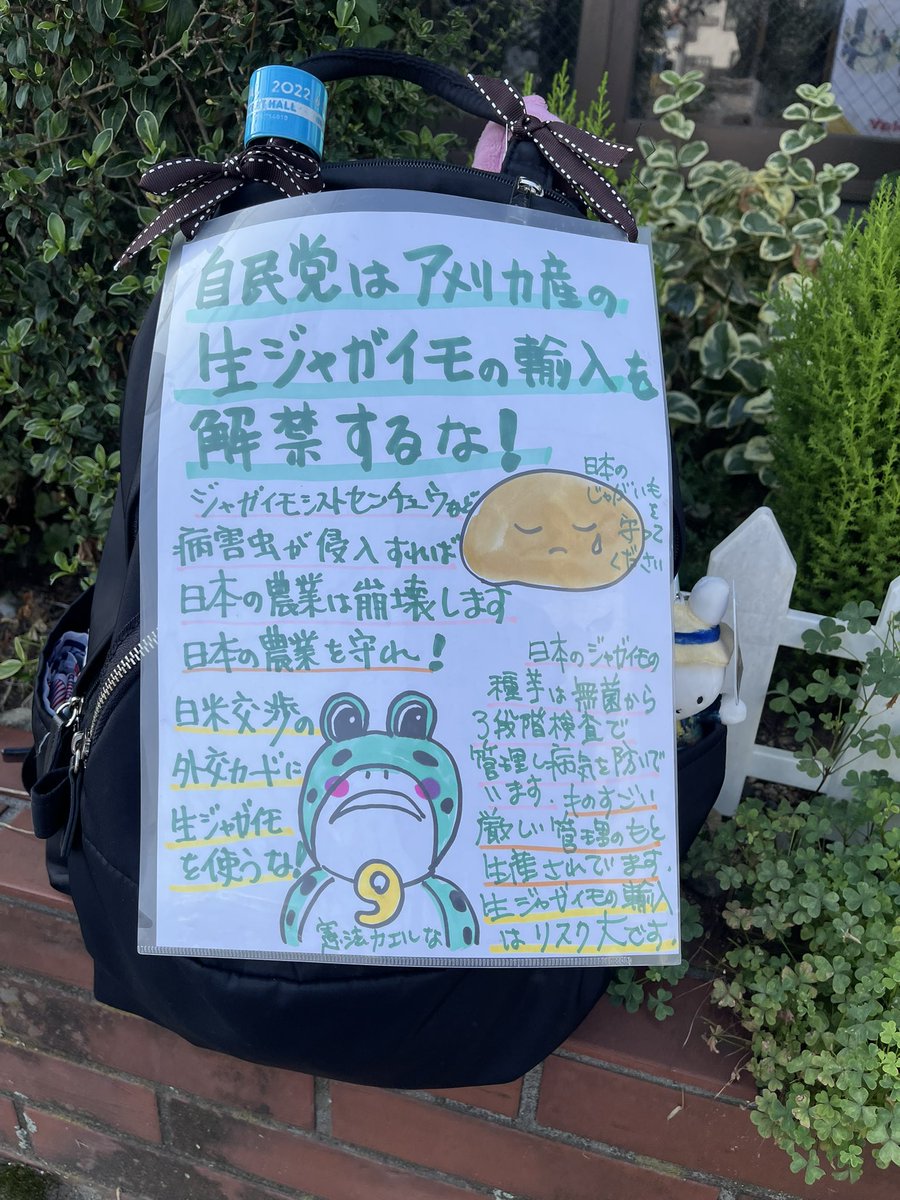 2022
HALL
自民党はアメリカ産の
生ジャガイモの輸入を
解禁するな!
ジャガイモシストセンチュウなど
病害虫が侵入すれば
日本の農業は崩壊します
日本の農業を守れ!
日本の
じゃがいも
を
守って
ください
日米交渉の
外交カードに
生ジャガイモ
を使うな!
9
憲法カエルな
日本のジャガイモの
種芋は無菌から
3段階検査で
管理し病気を防いで
います。ものすごい
厳しい管理のもと
生産されてます
生ジャガイモの輸入
はリスク大です